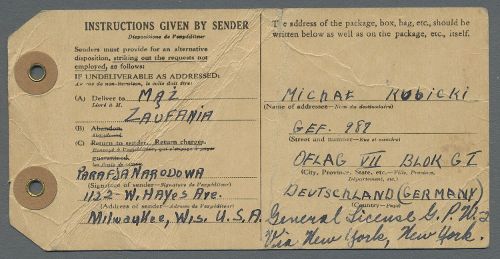 INSTRUCTIONS GIVEN BY SENDER
Dispositions de l'expéditeur
Senders must provide for an alternative
disposition, striking out the requests not
employed, as follows:
IF UNDELIVERABLE AS ADDRESSED:
Au cas de non-livraison, le colis doit être:
(A) Deliver to MĄŻ
Livré à M.
ZAUFANIA
(B) Abandon.
(C) Return to sender. Return charges
guaranteed.
PARAFJA NARODOWA
(Signature of sender—Signature de l'expéditeur)
1122 W. HAyes Ave.
(Address of sender—Adresse de l'expéditeur)
Milwaukee, Wis. U.S.A.
The address of the package, box, bag, etc., should be
written below as well as on the package, etc., itself.
MICHAŁ KUBICKI
(Name of addressee—Nom du destinataire)
GEF. 987
(Street and number—Rue et numéro)
OFLAG VII BLOK G I
(City, Province, State, etc.—Ville, Province,
Département, etc.)
DEUTSCHLAND (GERMANY)
(Country—Pays)
General License G.P.W.2
Via New York, New York.